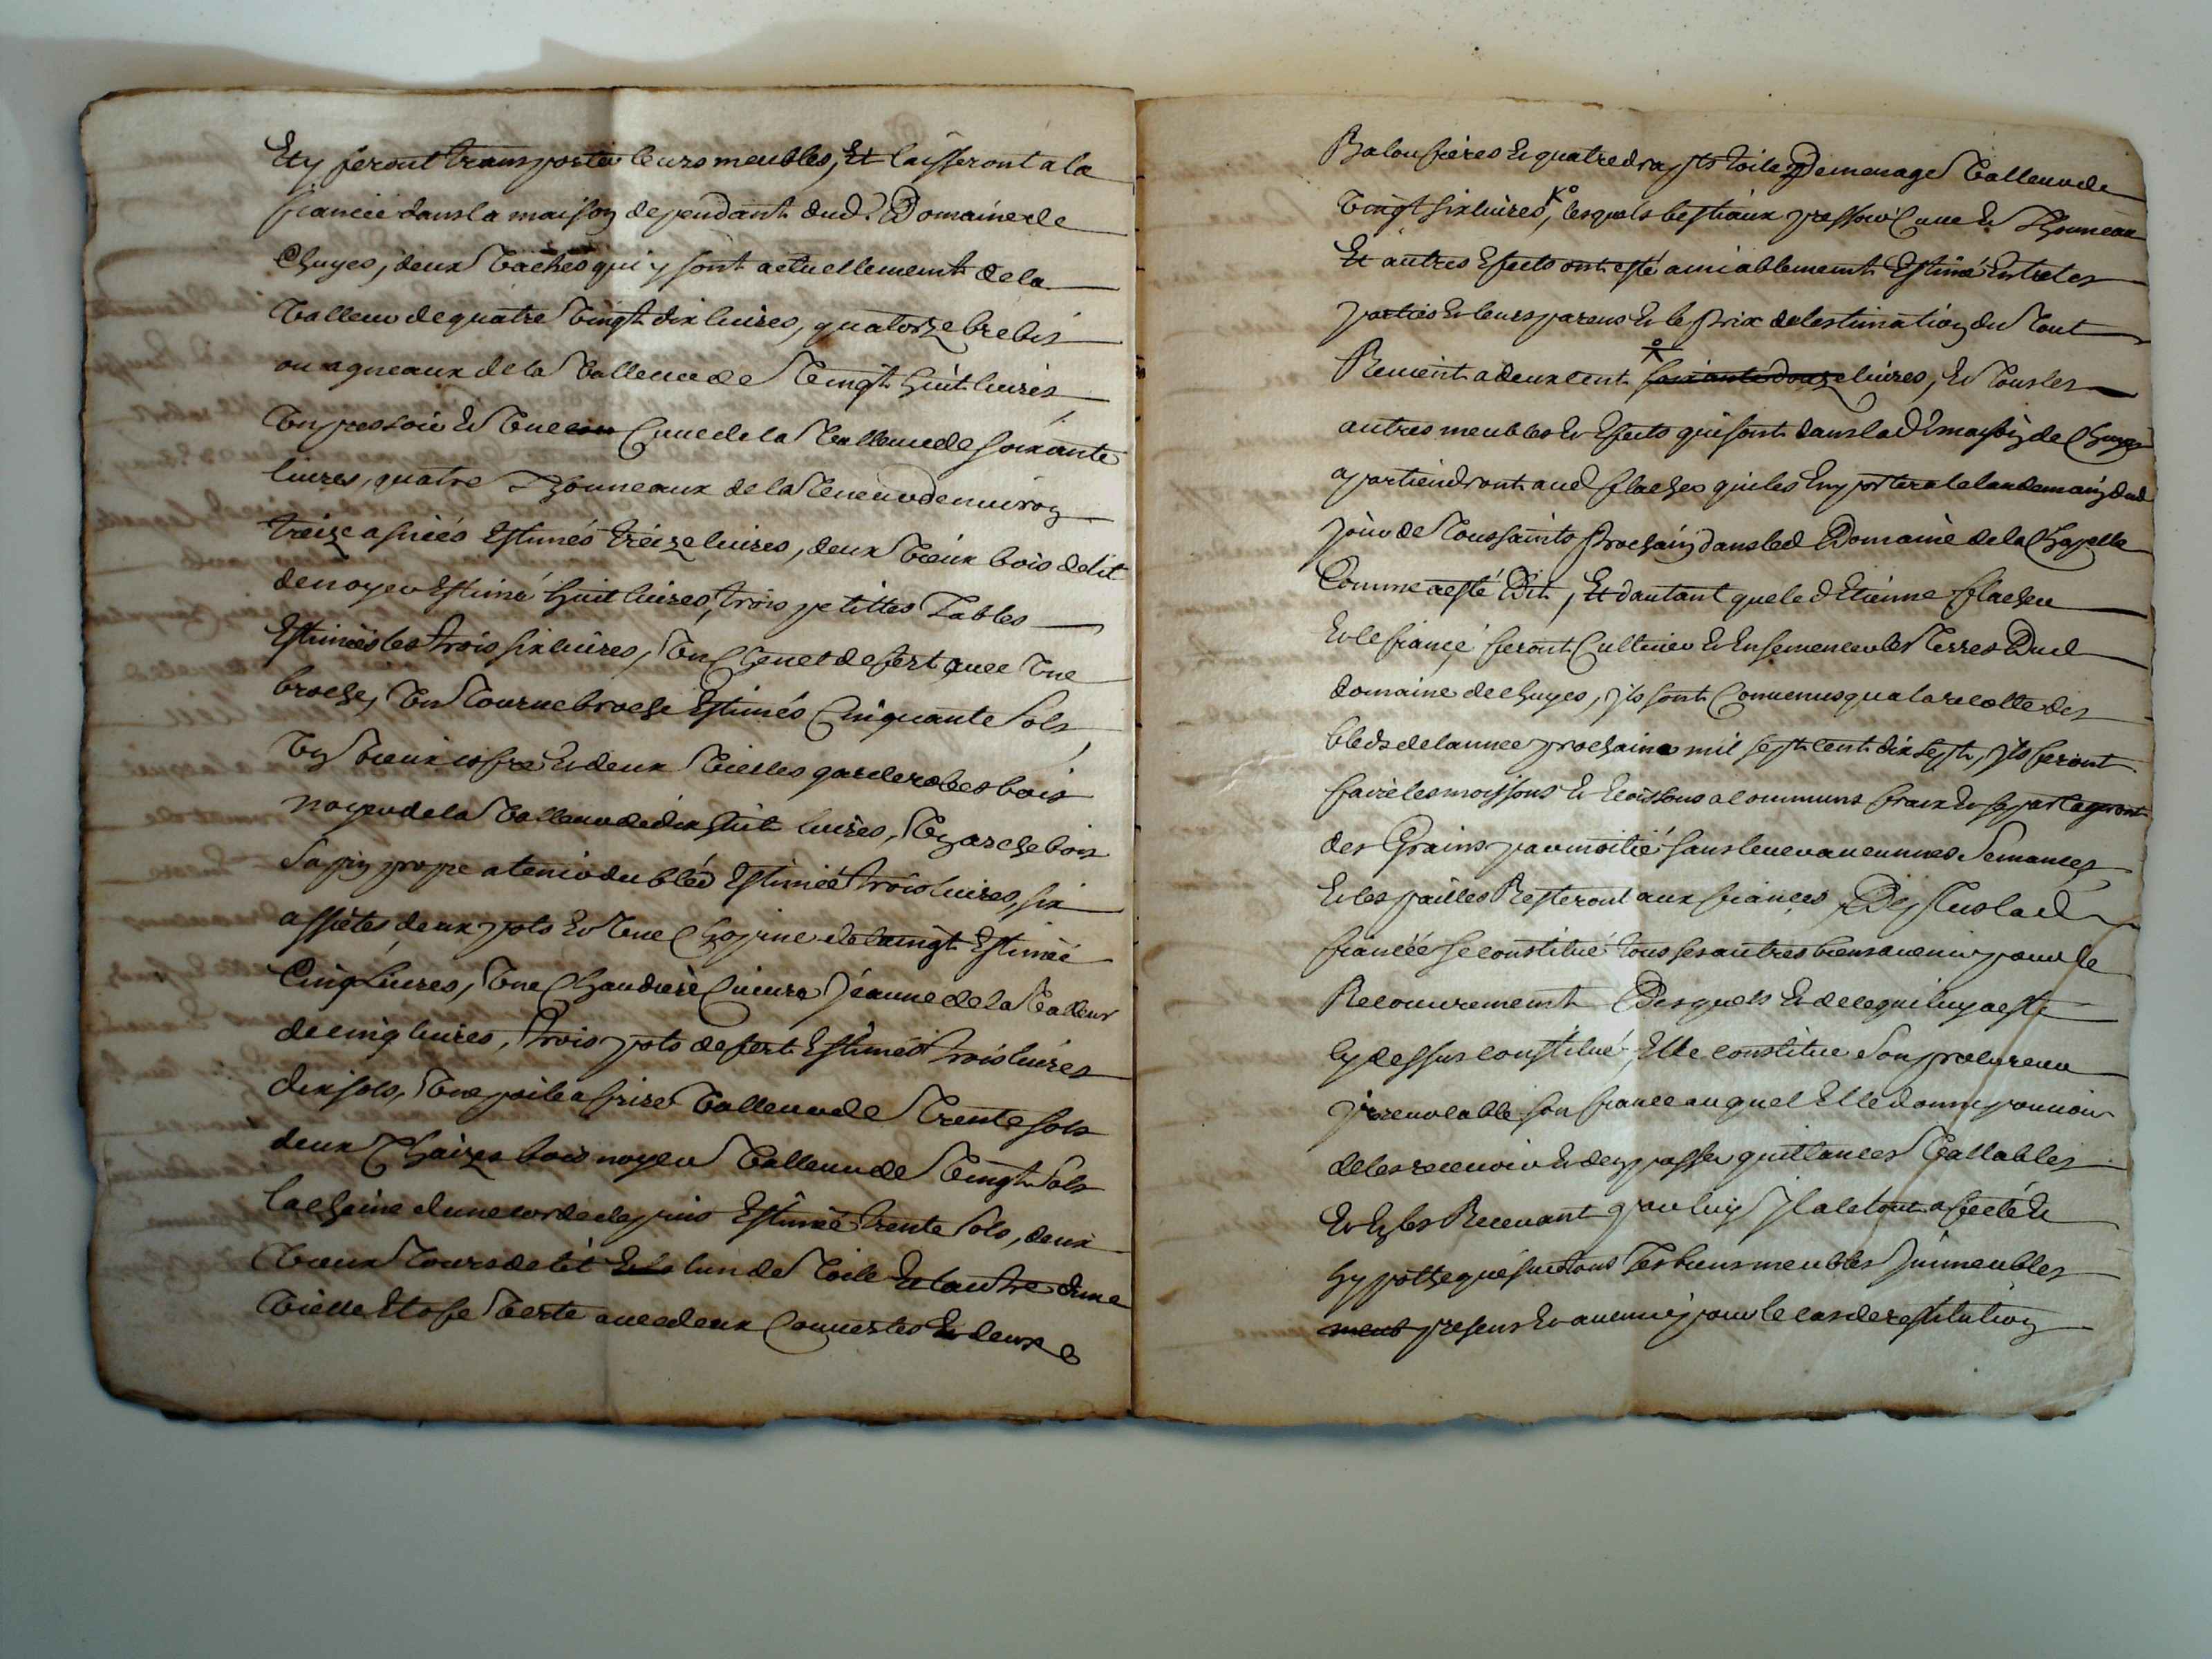 Et y feront transporter leurs meubles, Et laisseront a la
fiancée dans la maison dependant dud. Domaine de
Chuyes, deux vaches qui y sont actuellement de la
valleur de quatre vingt dix livres, quatorze brebis
ou agneaux de la valleur de vingt huit livres
un pressoir et une cuve de la valleur de soixante
livres, quatre thonneaux de la teneur denviron
treize asnées Estimés treize livres, deux vieux bois de lit
de noyer Estimé huit livres, trois petittes tables
Estimées les trois six livres, un chenet de fert avec une
broche, un tournebroche Estimés cinquante sols,
un vieux cofre et deux vielles garderobes bois
noyer de la valleur de dix huit livres, un arche bois
sapin propre a tenir du bled Estimée trois livres, six
assietes deux pots et une chopine Estimée
cinq livres, une chaudiere cuivre jeaune de la valleur
de cinq livres, trois pots de fert Estimés trois livres
dix sols, une poile a frire valleur de trente sols
deux chaizes bois noyer valleur de vingt sols
la chaine dune corde de puis Estimée trente sols, deux
vieux tours de lit lun de toile Et lautre dune
vielle Etofe verte avec deux couvertes et deux
et quatre draps toile de menage valleur de
vingt six livres, lesquels bestiaux pressoir cuve et thonneau
Et autres Efects ont esté amiablement Estimé Entre les
parties et leurs parens et le prix de lestimation du tout
Revient a deux cent soixante douze livres, et tous les
autres meubles et Efects qui sont dans lad. maison de Chuyes
apartiendront aud flacher qui les Emportera le landemain dud
jour de toussaints prochain dans led Domaine de la Chapelle
Comme a esté Dit, Et dautant que led Etienne flacher
et le fiancé feront cultiver et Ensemencer les terres Dud
domaine de Chuyes, ils sont convenus qua la recolte des
bleds de lannee prochaine mil sept cent dix sept, ils feront
faire les moissons et a communs fraix et se partageront
des Grains par moitié sans lever aucunnes semances
et les pailles Resteront aux fiancés, De plus lad
fiancée se constitue tous ses autres biens avenir pour le
Recouvrement Desquels et de ce qui luy a esté
cy dessus constitué, Elle constitue son procureur
irrevocable son fiance auquel Elle donne pouvoir
de les recevoir et den passer quittances vallables
et En les Recevant par luy il a le tout afecté et
hypotheque sur tous ses biens meubles immeubles
presens et avenir pour le cas de restitution